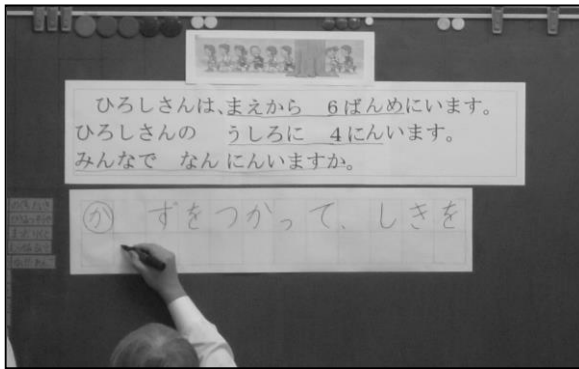 ひろしさんは、まえから 6ばんめにいます。
ひろしさんの うしろに 4にんいます。
みんなで なんにんいますか。
か ずをつかって、しきを